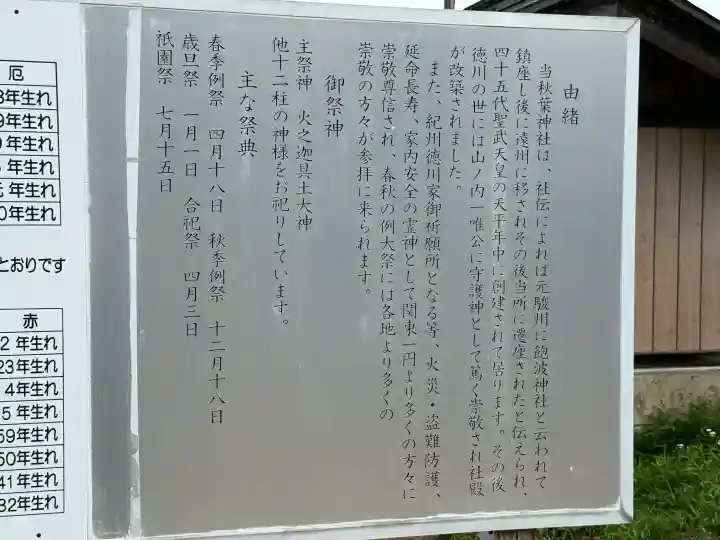 由緒
当秋葉神社は、社伝によれば元駿川に飽波神社と云われて
鎮座し後に遠州に移されその後当所に遷座されたと伝えられ、
四十五代聖武天皇の天平年中に創建されて居ります。その後
徳川の世には山ノ内一唯公に守護神として篤く崇敬され社殿
が改築されました。
また、紀州徳川家御祈願所となる等、火災・盗難防護、
延命長寿、家内安全の霊神として関東一円より多くの方々に
崇敬尊信され、春秋の例大祭には各地より多くの
崇敬の方々が参拝に来られます。
御祭神
主祭神 火之迦具土大神
他十二柱の神様をお祀りしています。
主な祭典
春季例祭 四月十八日 秋季例祭 十二月十八日
歳旦祭 一月一日 合祀祭 四月三日
祇園祭 七月十五日
厄
8年生れ
9年生れ
年生れ
年生れ
元年生れ
0年生れ
とおりです
赤
2年生れ
23年生れ
4年生れ
5年生れ
59年生れ
50年生れ
41年生れ
32年生れ